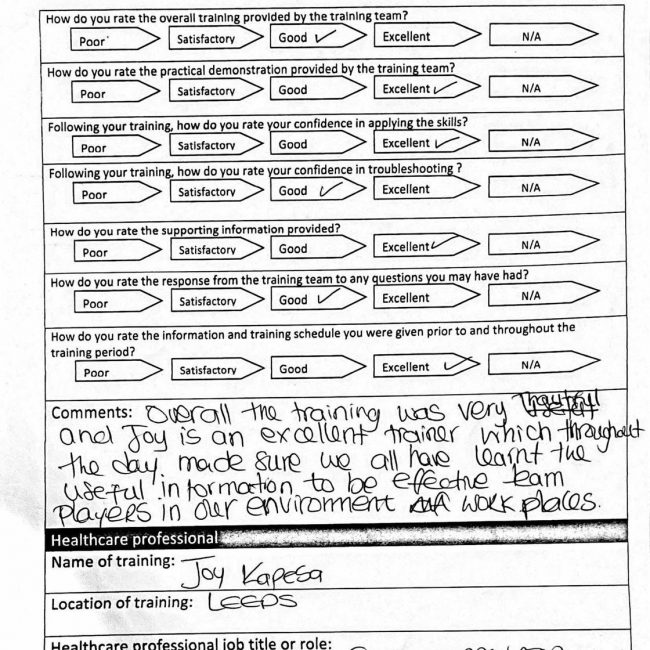 How do you rate the overall training provided by the training team?
Poor Satisfactory Good ✓ Excellent N/A
How do you rate the practical demonstration provided by the training team?
Poor Satisfactory Good Excellent ✓ N/A
Following your training, how do you rate your confidence in applying the skills?
Poor Satisfactory Good Excellent ✓ N/A
Following your training, how do you rate your confidence in troubleshooting ?
Poor Satisfactory Good ✓ Excellent N/A
How do you rate the supporting information provided?
Poor Satisfactory Good Excellent ✓ N/A
How do you rate the response from the training team to any questions you may have had?
Poor Satisfactory Good ✓ Excellent N/A
How do you rate the information and training schedule you were given prior to and throughout the
training period?
Poor Satisfactory Good Excellent ✓ N/A
Comments: Overall the training was very
and Joy is an excellent trainer which throughout
the day, made sure we all have learnt the
useful information to be effective team
players in our environment work places.
Healthcare professional
Name of training: Joy Kapesa
Location of training: LEEDS
Healthcare professional job title or role: